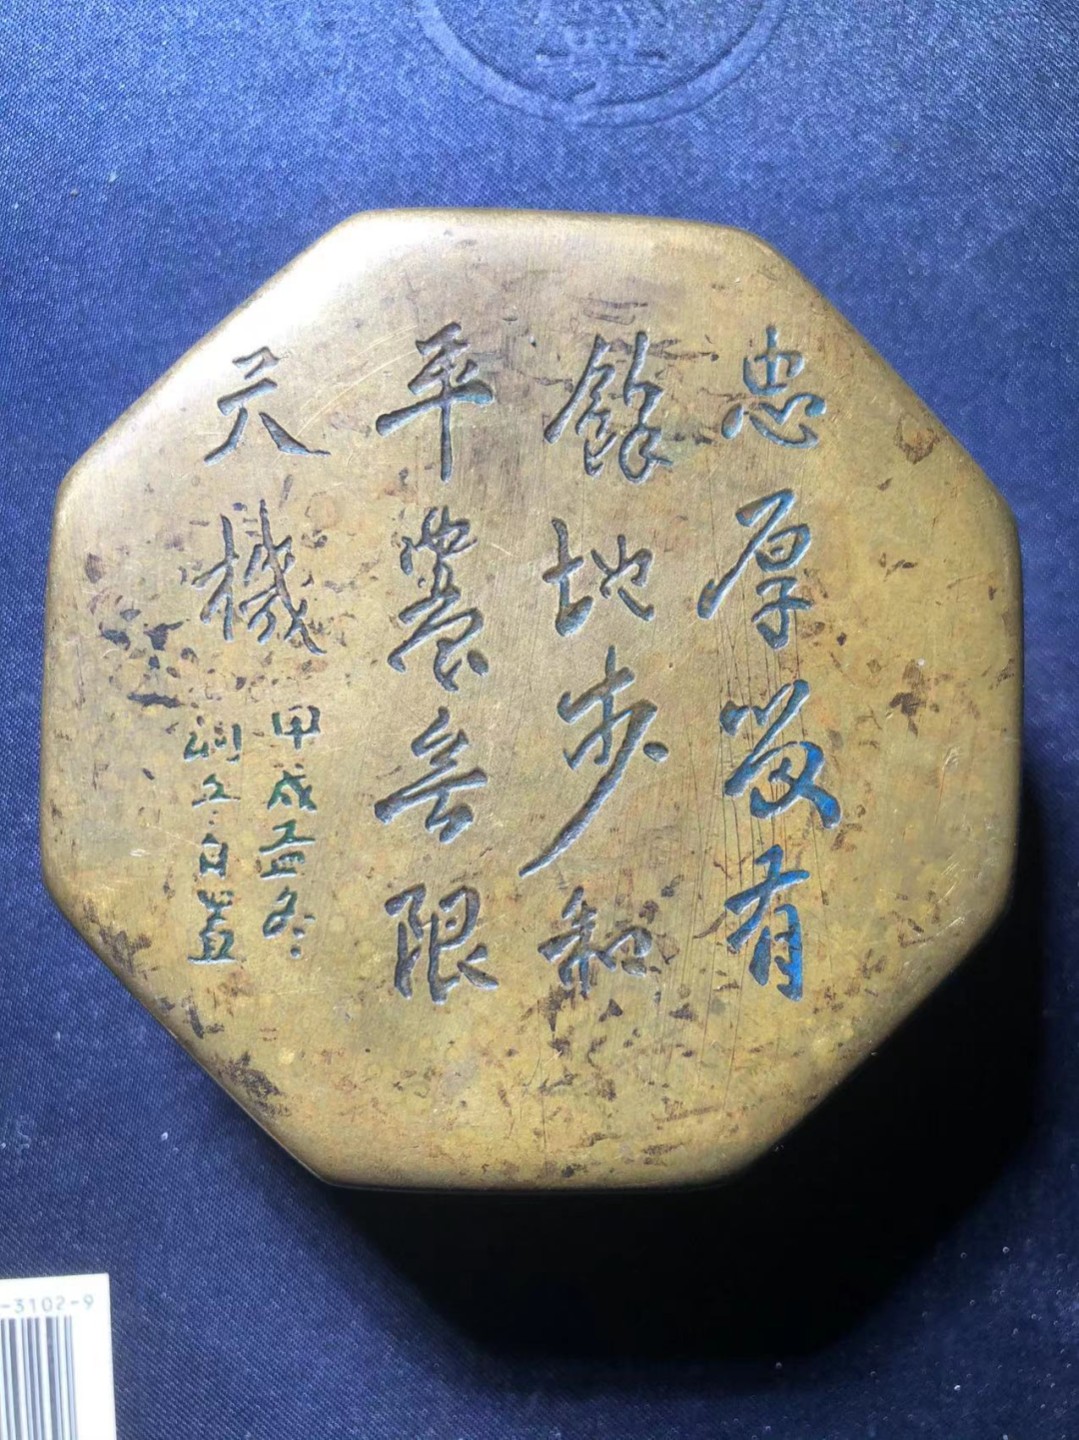 忠厚留有
餘地步和
平養無限
天機
甲戌孟冬
潤之自置
-3102-9